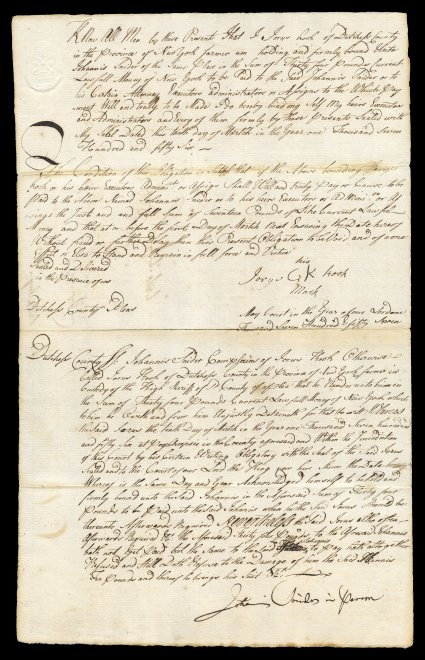 Know All Men by these Presents That I Jorys hook of Dutchess County
in the Province of New York farmer am holding and firmly bound Unto
Johannis Snider of the Same Place in the Sum of Thirty four Pounds Current
Lawfull Money of New York to be Paid to the Said Johannis Snider or to
his Certain Attorney Executors administrators or Assigns to the Which Pay
ment Well and truly to be Made I do hereby bind my Self My heirs Executors
and Administrators and Every of them firmly by these Presents Sealed with
My Seal Dated this tenth Day of March in the Year one Thousand Seven
Hundred and fifty Six
The Condition of this Obligation is Such that if the Above bounden Jorys
hook or his heirs Executors Or Assigns Shall Well and truly Pay or Cause to be
Paid to the Above Named Johannis Snider or to his heirs Executors or As
signs the Just and full Sum of Seventeen Pounds of Like Current Lawfull
Money and that at or before the first Day of March Next Ensuing the Date hereof
Without fraud or further Delay then this Present Obligation to be Void and of none
Effect or Else to Stand and Remain in full force and Virtue
Sealed and Delivered
in the Presence of us
his
Jorys K hook
Mark
Dutchess County Pleas
May Court in the Year of our Lord one
Thousand Seven Hundred fifty Seven
Dutchess County Ss. Johannis Snider Complains of Jorus Hook Otherwise
Called Jorus Hook of Dutchess County in the Province of New York farmer in
Custody of the High Sheriff of County of that he Render unto him
the Sum of Thirty four Pounds Current Lawfull Money of New York which
to him he Oweth and from him Unjustly Detaineth for that to wit Whereas
the Said Jorus the tenth Day of March in the Year one Thousand Seven hundred
and fifty Six at in the County aforesaid and Within the Jurisdiction
of this Court by his Certain Writing Obligatory with the Seal of the Said Jorus
Sealed and to the Court of our Lord the King now here Shewn the Date
Whereof is the Same Day and Year Acknowledged himself to be held and
firmly bound unto the Said Johannis in the Aforesaid Sum of Thirty four
Pounds to be Paid unto the Said Johannis when he the Said Jorus Should be
thereunto Afterwards Required Nevertheless the Said Jorus altho often
Afterwards Required the Aforesaid thirty four Pounds to the Aforesaid Johannis
hath not Yet Paid but the Same to him to Pay hath altogether
Refused and Still Doth Refuse to the Damage of him the Said Johannis
Pounds and thereof he brings his Suit &c
Johannis Snider in Person